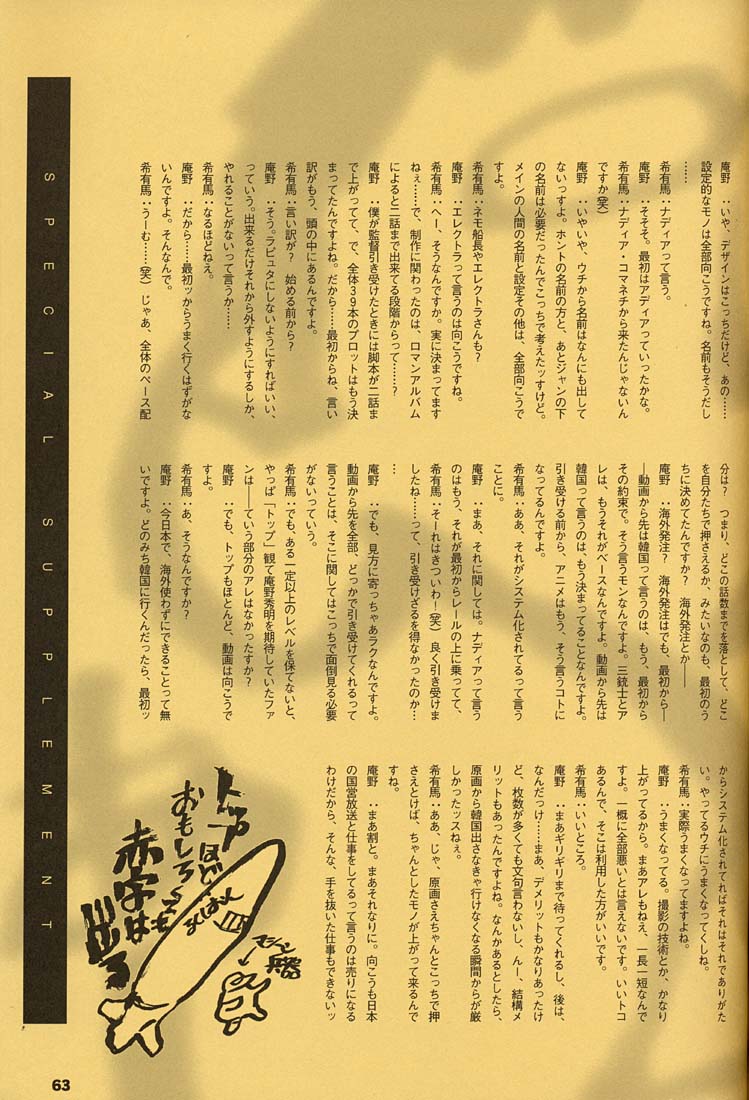 庵野　：いや、デザインはこっちだけど、あの……
設定的なモノは全部向こうですね。名前もそうだし
……
希有馬：ナディアって言う。
庵野　：そそそ。最初はアディアっていったかな。
希有馬：ナディア・コマネチから来たんじゃないん
ですか(笑)
庵野　：いやいや、ウチから名前はなんにも出して
ないっすよ。ホントの名前の方と、あとジャンの下
の名前は必要だったんでこっちで考えたッすけど。
メインの人間の名前と設定その他は、全部向こうで
すよ。
希有馬：ネモ船長やエレクトラさんも？
庵野　：エレクトラって言うのは向こうですね。
希有馬：へー、そうなんですか。実に決まってます
ねぇ……で、制作に関わったのは、ロマンアルバム
によると二話まで出来てる段階からって……？
庵野　：僕が監督引き受けたときには脚本が二話ま
で上がってて、で、全体39本のプロットはもう決
まってたんですよね。だから……最初からね、言い
訳がもう、頭の中にあるんですよ。
希有馬：言い訳が？　始める前から？
庵野　：そう。ラピュタにしないようにすればいい、
っていう。出来るだけそれから外すようにするしか、
やれることがないって言うか……
希有馬：なるほどねぇ。
庵野　：だから……最初ッからうまく行くはずがな
いんですよ。そんなんで。
希有馬：うーむ……(笑)じゃあ、全体のペース配
分は？　つまり、どこの話数までを落として、どこ
を自分たちで押さえるか、みたいなのも、最初のう
ちに決めてたんですか？　海外発注とか――
庵野　：海外発注？　海外発注はでも、最初から―
―動画から先は韓国って言うのは、もう、最初から
その約束で。そう言うモンなんですよ。三銃士とア
レは、もうそれがベースなんですよ。動画から先は
韓国って言うのは、もう決まってることなんですよ。
引き受ける前から、アニメはもう、そう言うコトに
なってるんですよ。
希有馬：ああ、それがシステム化されてるって言う
ことに。
庵野　：まあ、それに関しては。ナディアって言う
のはもう、それが最初からレールの上に乗ってて、
希有馬：そーれはきついわ！(笑)良く引き受けま
したね……って、引き受けざるを得なかったのか…
…
庵野　：でも、見方に寄っちゃあラクなんですよ。
動画から先を全部、どっかで引き受けてくれるって
言うことは、そこに関してはこっちで面倒見る必要
がないっていう。
希有馬：でも、ある一定以上のレベルを保てないと、
やっぱ「トップ」観て庵野秀明を期待していたファ
ンは――ていう部分のアレはなかったすか？
庵野　：でも、トップもほとんど、動画は向こうで
すよ。
希有馬：あ、そうなんですか？
庵野　：今日本で、海外使わずにできることって無
いですよ。どのみち韓国に行くんだったら、最初ッ
からシステム化されてればそれはそれでありがた
い。やってるウチにうまくなってくしね。
希有馬：実際うまくなってますよね。
庵野　：うまくなってる。撮影の技術とか、かなり
上がってるから。まあアレもねえ、一長一短なんで
すよ。一概に全部悪いとは言えないです。いいトコ
あるんで、そこは利用した方がいいです。
希有馬：いいところ。
庵野　：まあギリギリまで待ってくれるし、後は、
なんだっけ……まあ、デメリットもかなりあったけ
ど、枚数が多くても文句言わないし、んー、結構メ
リットもあったんですよね。なんかあるとしたら、
原画から韓国出さなきゃ行けなくなる瞬間からが厳
しかったッスねぇ。
希有馬：ああ、じゃ、原画さえちゃんとこっちで押
さえとけば、ちゃんとしたモノが上がって来るんで
すね。
庵野　：まあ割と。まあそれなりに。向こうも日本
の国営放送と仕事をしてるって言うのは売りになる
わけだから、そんな、手を抜いた仕事もできないッ
おもしろくても
赤字は
出る
SPECIAL SUPPLEMENT
63